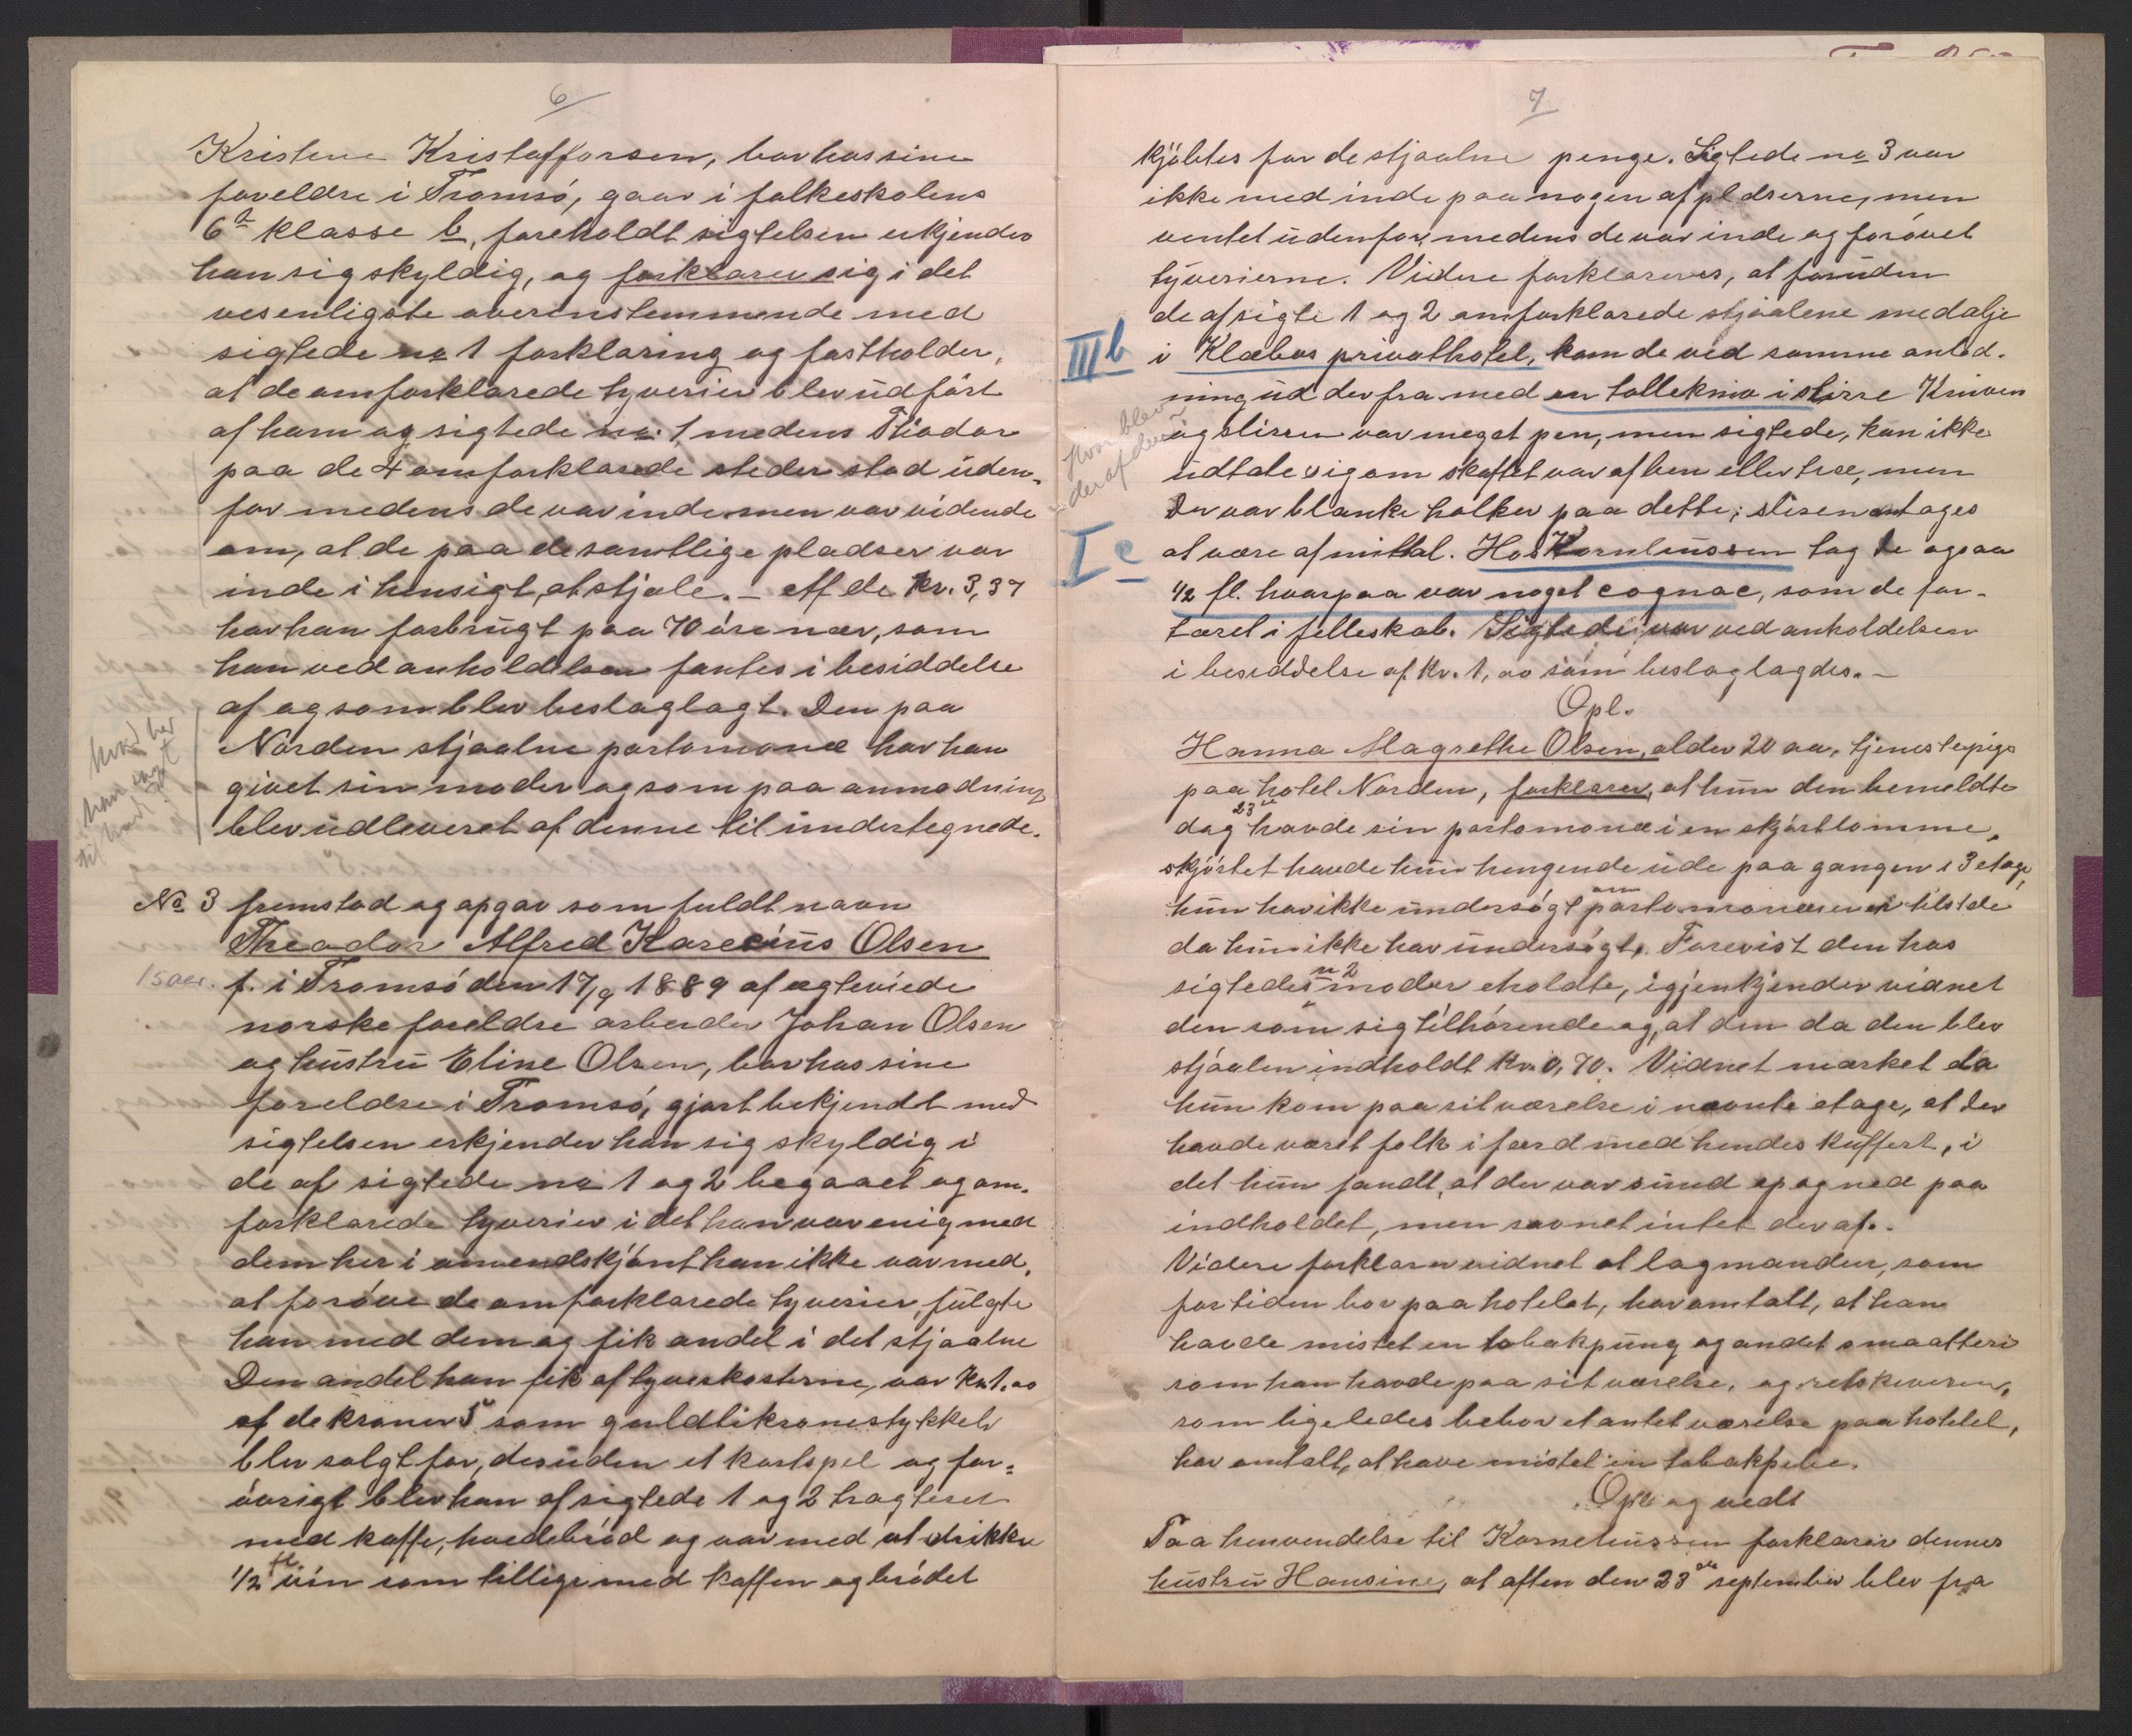 6
Kristene Kristoffersen, bor hos sine
foreldre i Tromsö, gaar i folkeskolens
6te klasse b, foreholdt sigtelsen erkjender
han sig skyldig, og forklarer sig i det
vesenligste overenstemmende med
sigtede no 1 forklaring og fastholder,
at de omforklarede tyverier blev udfört
af ham og sigtede no. 1 medens Thiodor
paa de 4 omforklarede steder stod uden-
for medens de var inde men var vidende
om, at de paa de samtlige pladser var
inde i hensigt, at stjæle. – Af de kr. 3,37
har han forbrugt paa 70 öre nær, som
han ved anholdelsen fantes i besiddelse
af og som blev beslaglagt. Den paa
Norden stjaalne portomonæ har han
givet sin moder og som paa anmodning
blev udleveret af denne til undertegnede.
hvad har
han sagt
til hvad
No 3 fremstod og opgav som fuldt navn
Theodor Alfred Karecius Olsen
15 aar. f. i Tromsö den 17/9 1889 af ægteviede
norske foreldre arbeider Johan Olsen
og hustru Eline Olsen, bor hos sine
foreldre i Tromsö, gjort bekjendt med
sigtelsen erkjender han sig skyldig i
de af sigtede no 1 og 2 begaaet og om-
forklarede tyverier i det han var enig med
dem her i omendskjönt han ikke var med,
at foröve de omforklarede tyverier fulgte
han med dem og fik andel i det stjaalne
Den andel han fik af tyvekosterne, var Kr 1,00
af de kroner 5 som guldtikronestykket
blev solgt for, desuden et kortspel og for-
övrigt blev han af sigtede 1 og 2 tragteret
med kaffe, hvedebröd og var med at drikke
1/2 fl vin som tillige med kaffen og brödet
7
kjöbtes for de stjaalne penge. Sigtede no 3 var
ikke med inde paa nogen af pladserne, men
ventet udenfor, medens de var inde og forövet
tyverierne. Videre forklareres, at foruden
de af sigte 1 og 2 omforklarede stjaalene medalje
IIIb i Klæbos privathotel, kom de ved samme anled-
ning ud der fra med en tollekniv i slirre Kniven
og slirren var meget pen, men sigtede, kan ikke
udtale sig om skaftet var af ben eller træ, men
hvor blev
der af den
Der var blanke holker paa dette; slisen antages
Ic at være af mittal. Hos Kornliussen tog de ogsaa
1/2 fl. hvorpaa var noget cognac, som de for-
tæret i felleskab. Sigtede var ved anholdelsen
i besiddelse af Kr. 1,00 som beslaglagdes. –
Opl.
Hanna Magrethe Olsen, alder 20 aar, tjenestepige
paa hotel Norden, forklarer, at hun den bemeldte
dag 23de havde sin portomonæ i en skjörtlomme,
skjörtet havde hun hengende ude paa gangen i 3 etage,
hun har ikke undersögt om portomonæen er tilstede
da hun ikke har undersögt. Forevist den hos
sigtedes n 2 moder eholdte, igjenkjender vidnet
den som sig tilhörende og, at den da den blev
stjaalen indholdt Kr. 0,70. Vidnet mærket da
hun kom paa sit værelse i nævnte etage, at der
havde været folk i færd med hendes kuffert, i
det hun fandt, at der var snud op og ned paa
indholdet, men savnet intet deraf.
Videre forklarer vidnet at lagmanden, som
for tiden bor paa hotelet, har omtalt, at han
havde mistet en tobakpung og andet smaatteri
som han havde paa sit værelse, og retskeveren,
som ligeledes bebor et antet værelse paa hotelet,
har omtalt, at have mistet en tobakpibe.
Opl. og vedt
Paa henvendelse til Kornelussen forklarer dennes
hustru Hansine, at aften den 23de september blev fra